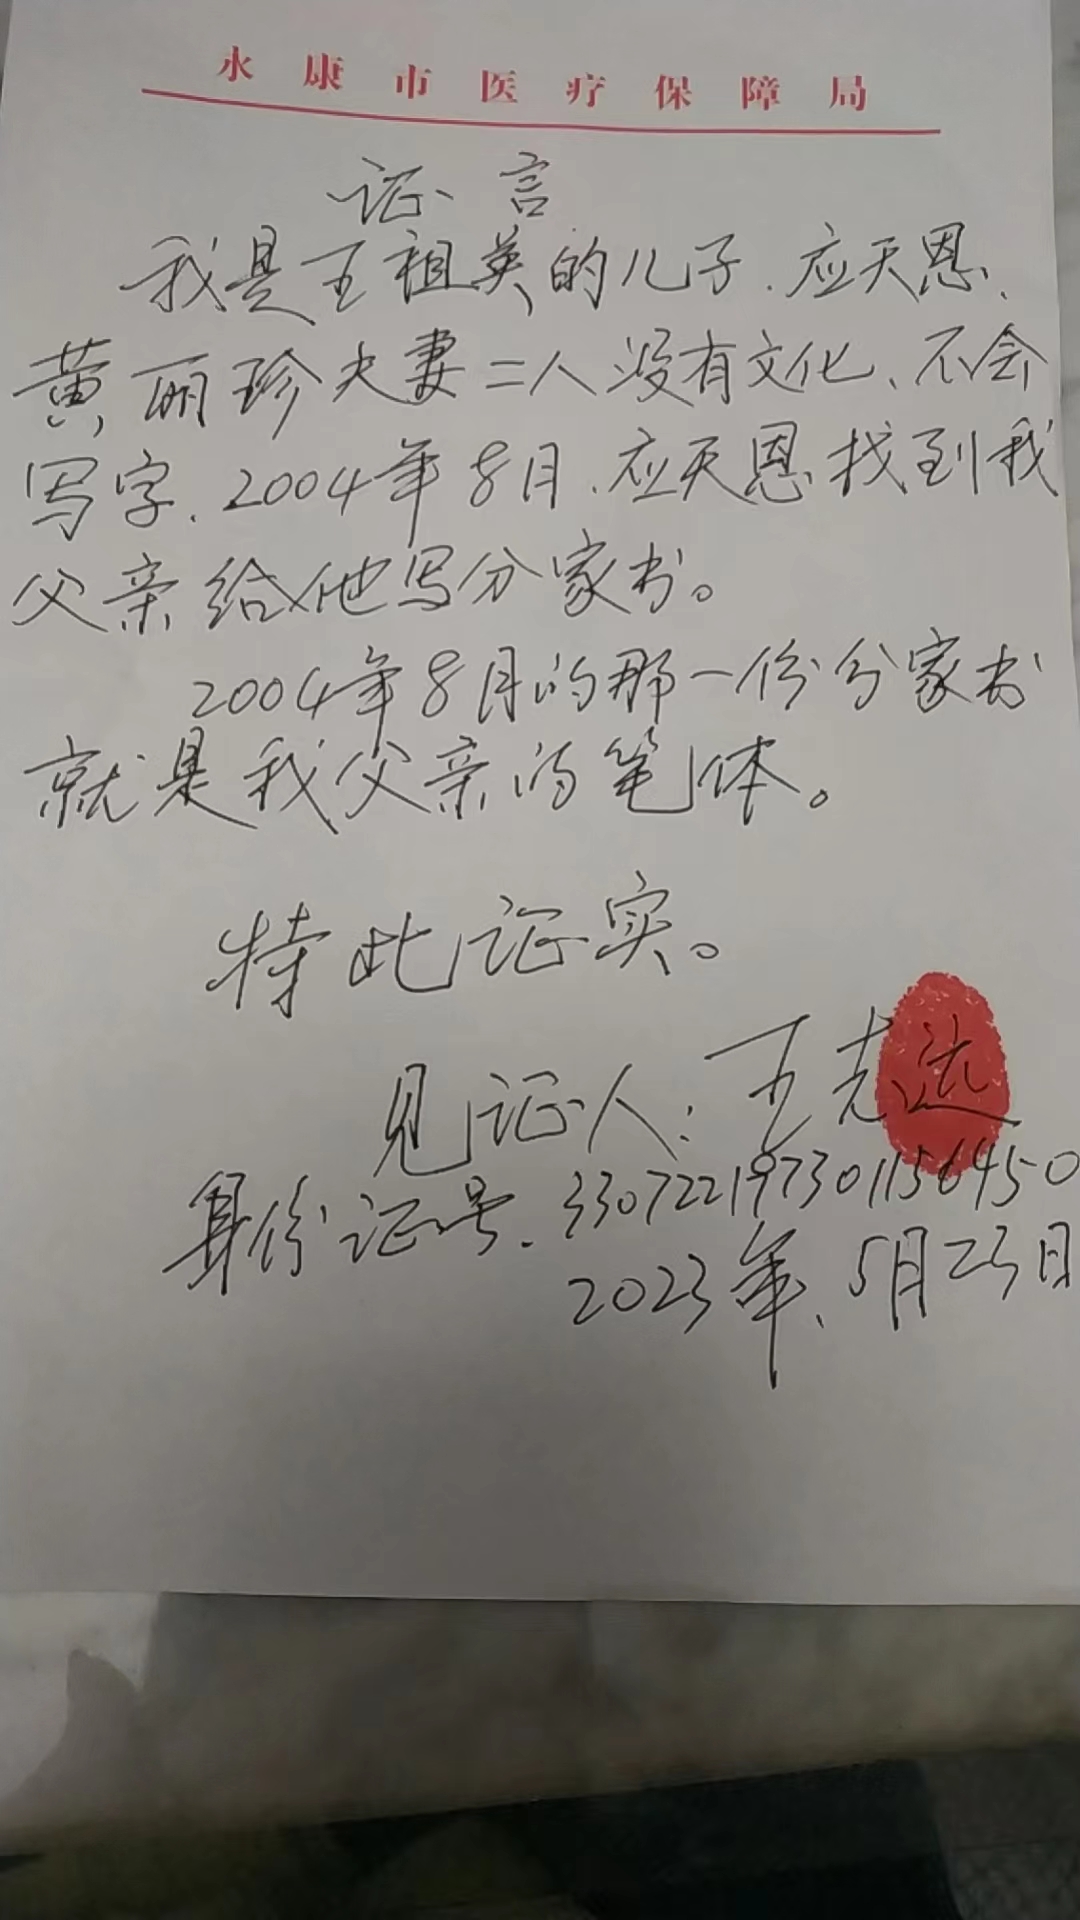 永康市医疗保障局
证言
我是王祖英的儿子.应天恩、
黄丽珍夫妻二人没有文化、不会
写字.2004年8月.应天恩找到我
父亲给他写分家书。
2004年8月的那一份分家书
就是我父亲的笔体。
特此证实。
见证人:王志远
身份证号.330722197301156450
2023年、5月23日